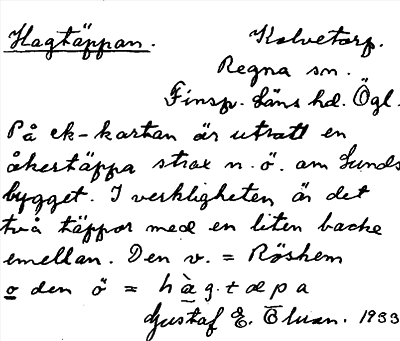 Hagtäppan. Kalvetorp.
Regna sn.
Finsp. läns hd. Ögl.
På ek-kartan är utsatt en
åkertäppa strax n. ö. om Lunds
bygget. I verkligheten är det
två täppor med en liten backe
emellan. Den v. = Röshem
o den ö = hàg.tæpa
Gustaf E. 1933